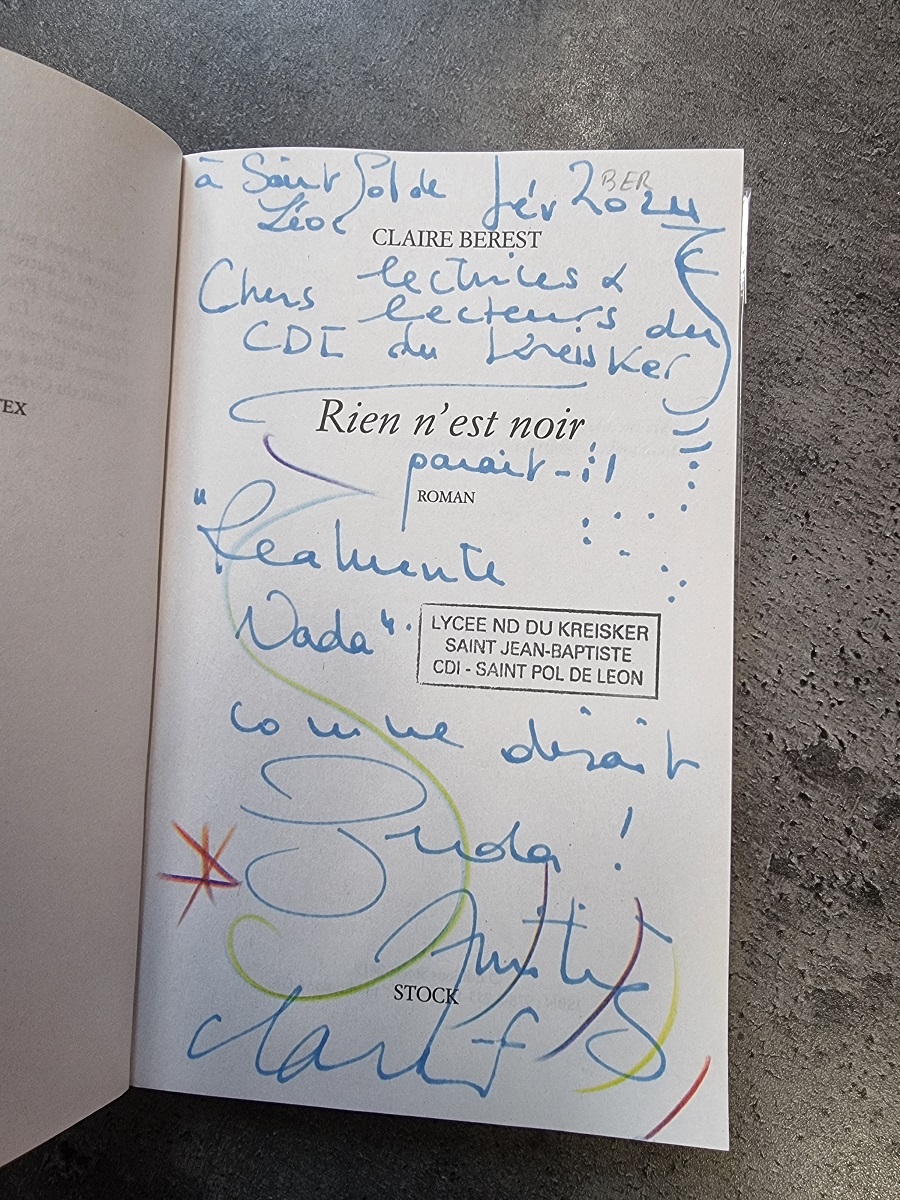 TEX
à Saint Pol de Léon
fév 2024
BER
CLAIRE BEREST
Chers lectrices &
lecteurs du
CDI du Kreisker
Rien n'est noir
parait-il
ROMAN
"Realmente
Nada".
LYCEE ND DU KREISKER
SAINT JEAN-BAPTISTE
CDI - SAINT POL DE LEON
comme disait
Frida !
Amitiés
STOCK
Claire